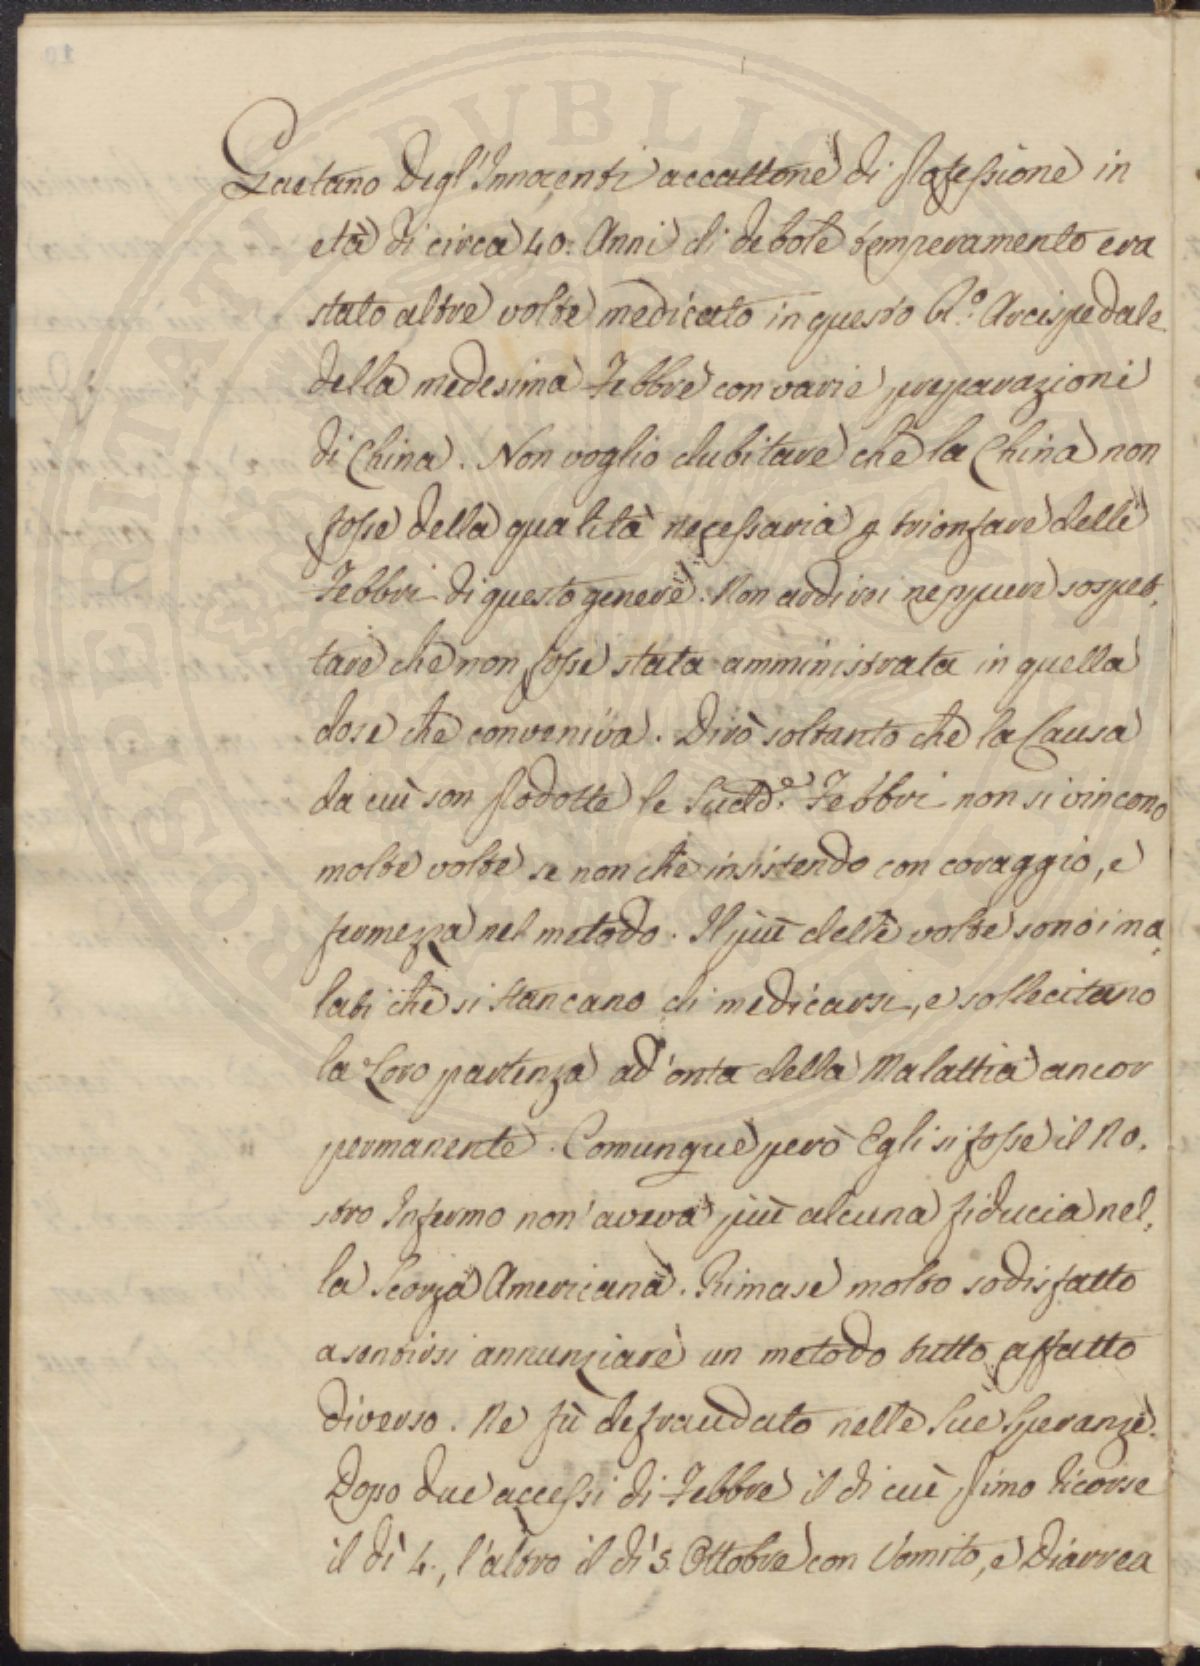 Gaetano Degl'Innocenti accattone di professione in
età di circa 40. Anni di debole temperamento era
stato altre volte medicato in questo R.º Arcispedale
della medesima Febbre con varie preparazioni
di China. Non voglio dubitare che la China non
fosse della qualità necessaria p trionfare delle
Febbri di questo genere. Non ardirei neppure sospet,
tare che non fosse stata amministrata in quella
dose che conveniva. Dirò soltanto che la Causa
da cui son prodotte le Sudd.e Febbri non si vincono
molte volte se non che insistendo con coraggio, e
fermezza nel metodo. Il più delle volte sono i ma,
lati che si stancano di medicarsi, e sollecitano
la Loro partenza ad'onta della Malattia ancor
permanente. Comunque però Egli si fosse il No,
stro Infermo non'aveva più alcuna fiducia nel,
la Scorza Americana. Rimase molto sodisfatto
a sentirsi annunziare un metodo tutto affatto
diverso. Ne fù defraudato nelle Sue Speranze.
Dopo due accessi di Febbre il di cui primo ricorse
il dì 4., l'altro il dì 5. Ottobre con Vomito, e Diarrea
PUBLIC